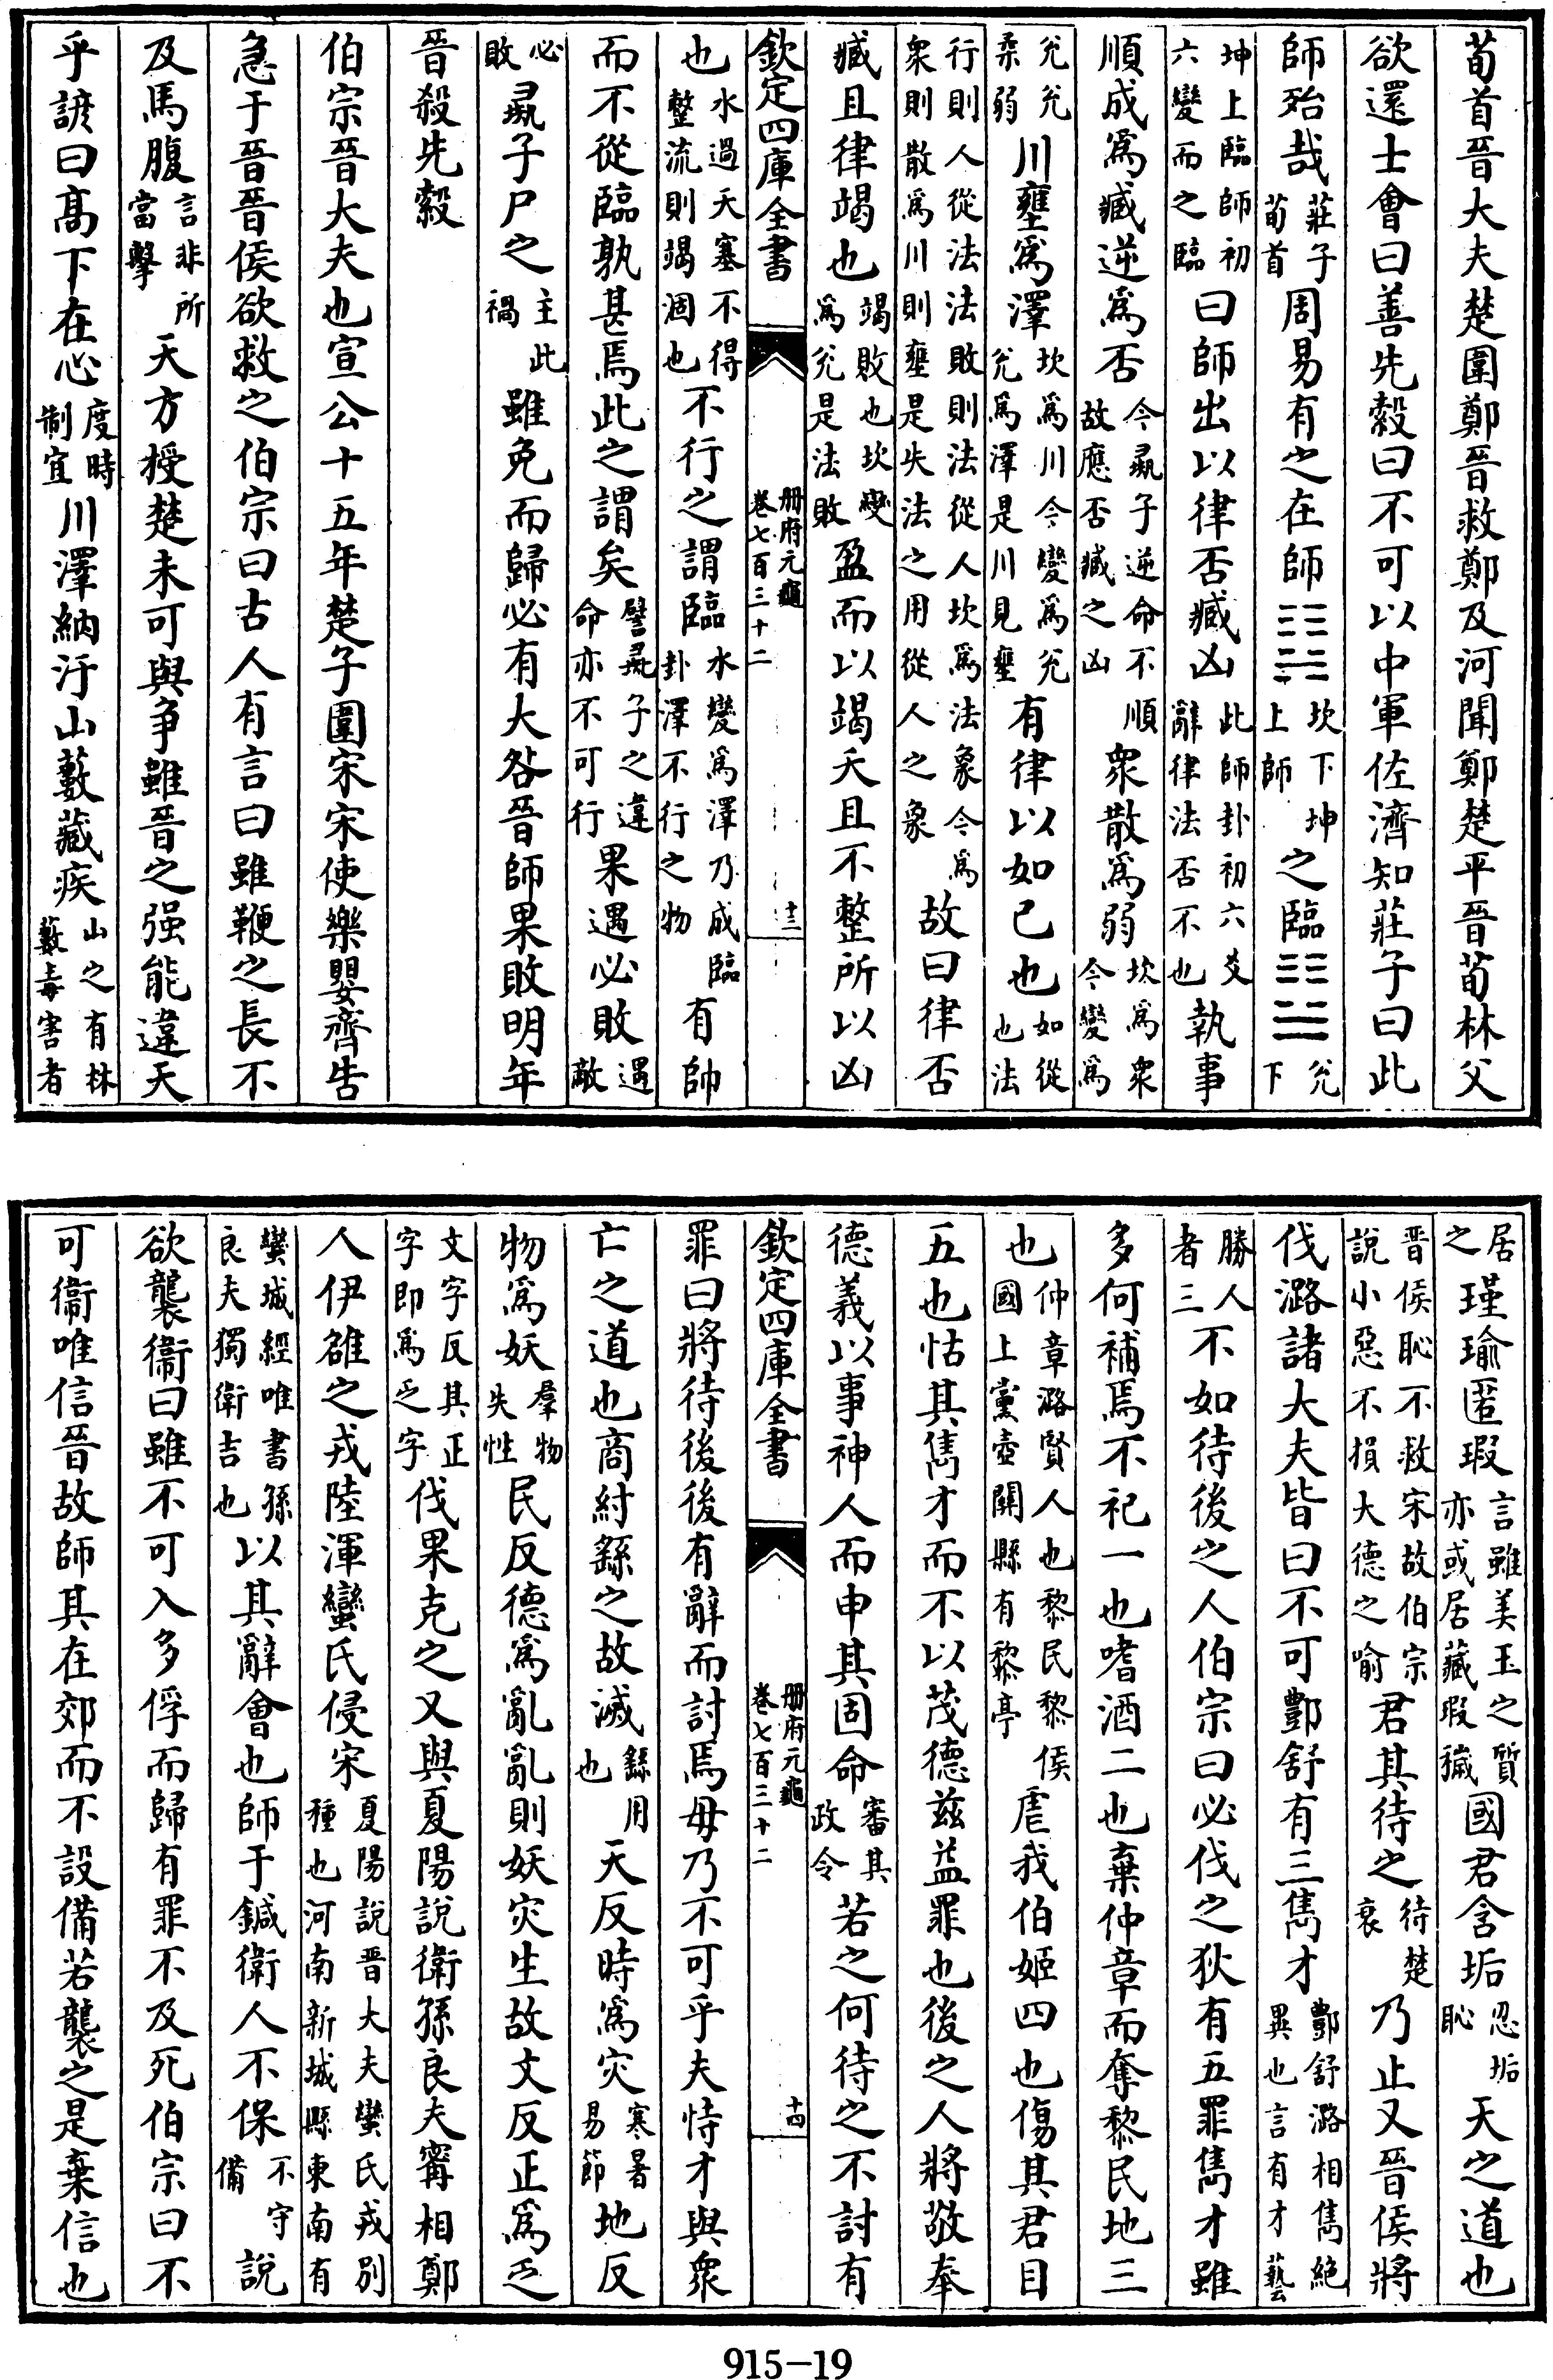 荀首晉大夫楚圍鄭晉救鄭及河聞鄭楚平晉荀林父
欲還士會曰善先縠曰不可以中軍佐濟知莊子曰此
師殆哉莊子荀首周易有之在師䷆坎下坤上師之臨䷒兊下
坤上臨師初六變而之臨曰師出以律否臧凶此師卦初六爻辭律法否不也執事
順成為臧逆為否今彘子逆命不順故應否臧之凶衆散為弱坎為衆今變為
兊兊柔弱川壅為澤坎為川今變為兊兊為澤是川見壅有律以如已也如從也法
行則人從法法敗則法從人坎為法象今為衆則散為川則壅是失法之用從人之象故曰律否
臧且律竭也竭敗也坎變為兊是法敗盈而以竭夭且不整所以凶
欽定四庫全書 冊府元龜卷七百三十二 十三
也水過夭塞不得整流則竭涸也不行之謂臨水變為澤乃成臨卦澤不行之物有帥
而不從臨孰甚焉此之謂矣譬彘子之違命亦不可行果遇必敗遇敵
必敗彘子尸之主此禍雖免而歸必有大咎晉師果敗明年
晉殺先縠
伯宗晉大夫也宣公十五年楚子圍宋宋使樂嬰齊告
急于晉晉侯欲救之伯宗曰古人有言曰雖鞭之長不
及馬腹言非所當擊天方授楚未可與争雖晉之强能違天
乎諺曰髙下在心度時制宜川澤納汙山藪藏疾山之有林藪毒害者
居之瑾瑜匿瑕言雖美玉之質亦或居藏瑕穢國君含垢忍垢恥天之道也
晉侯恥不救宋故伯宗說小惡不損大德之喻君其待之待楚衰乃止又晉侯將
伐潞諸大夫皆曰不可酆舒有三雋才酆舒潞相雋絶異也言有才藝
勝人者三不如待後之人伯宗曰必伐之狄有五罪雋才雖
多何補焉不祀一也嗜酒二也棄仲章而奪黎民地三
也仲章潞賢人也黎民黎侯國上黨壺關縣有黎亭虐我伯姬四也傷其君目
五也怙其雋才而不以茂德兹益罪也後之人將敬奉
德義以事神人而申其固命審其政令若之何待之不討有
欽定四庫全書 冊府元龜卷七百三十二 十四
罪曰將待後後有辭而討焉毋乃不可乎夫恃才與衆
亡之道也商紂繇之故滅繇用也天反時為灾寒暑易節地反
物為妖羣物失性民反德為亂亂則妖灾生故文反正為乏
文字反其正字即為乏字伐果克之又與夏陽說衛孫良夫甯相鄭
人伊雒之戎陸渾蠻氏侵宋夏陽說晉大夫蠻氏戎别種也河南新城縣東南有
蠻城經唯書孫良夫獨衛吉也以其辭會也師于鍼衛人不保不守備說
欲襲衛曰雖不可入多俘而歸有罪不及死伯宗曰不
可衞唯信晉故師其在郊而不設備若襲之是棄信也
915-19